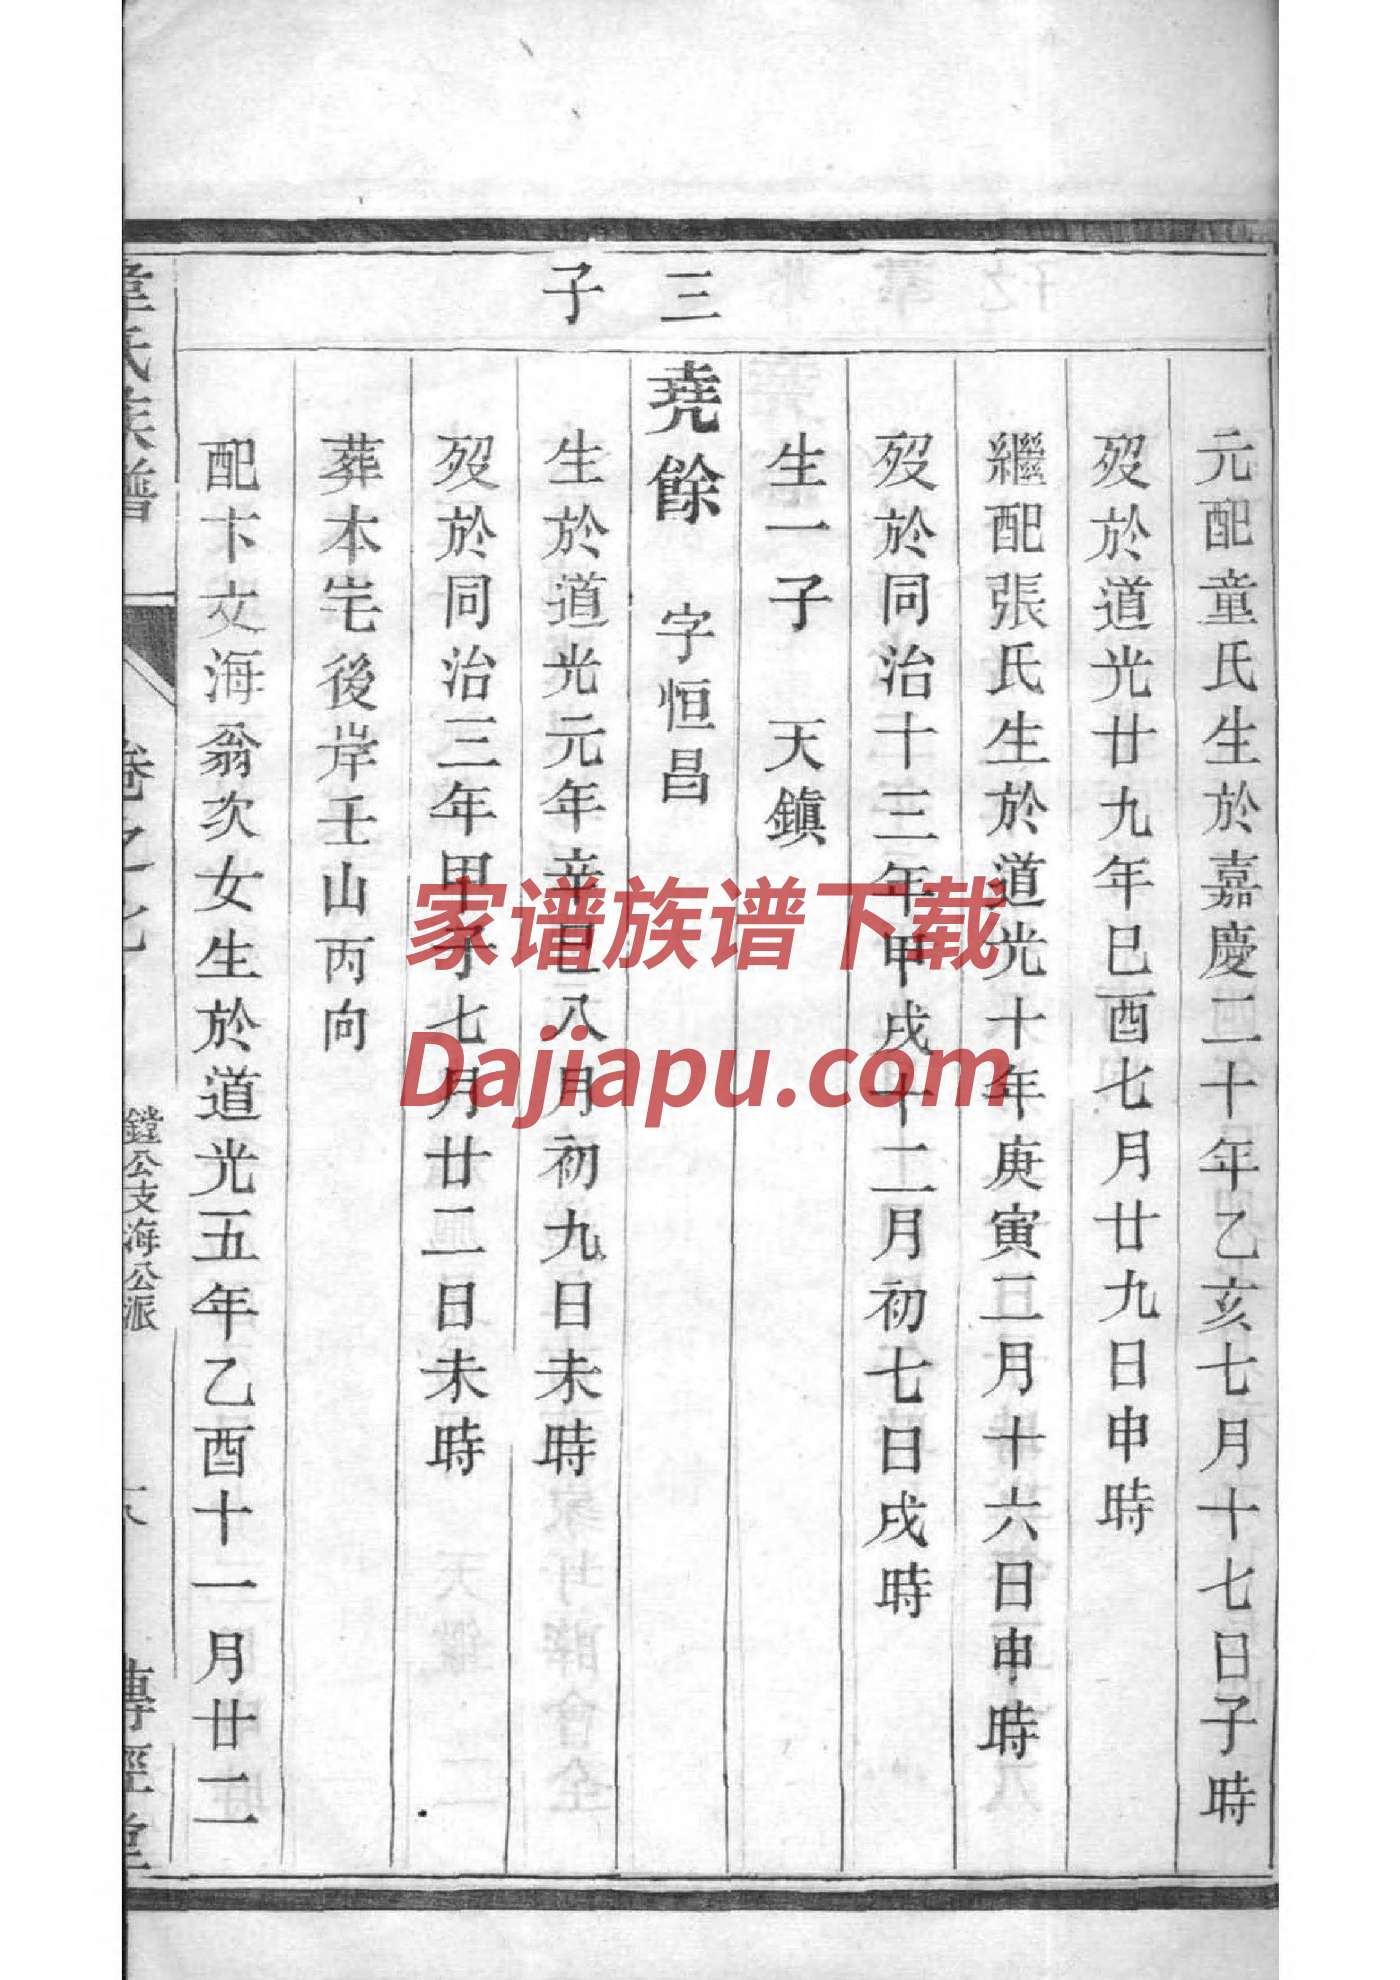 元配童氏生於嘉慶二十年乙亥七月十七日子時
歿於道光廿九年巳酉七月廿九日申時
繼配張氏生於道光十年庚寅三月十六日申時
歿於同治十三年甲戌十二月初七日戌時
生一子 天鎮
三
堯餘 字恒昌
子
生於道光元年辛巳八月初九日未時
歿於同治三年甲子七月廿二日未時
葬本宅後岸壬山丙向
配卞文海翁次女生於道光五年乙酉十一月廿二
韋氏族譜
卷之七
鏜公支海公派
傳經堂
家谱族谱下载
Dajiapu.com